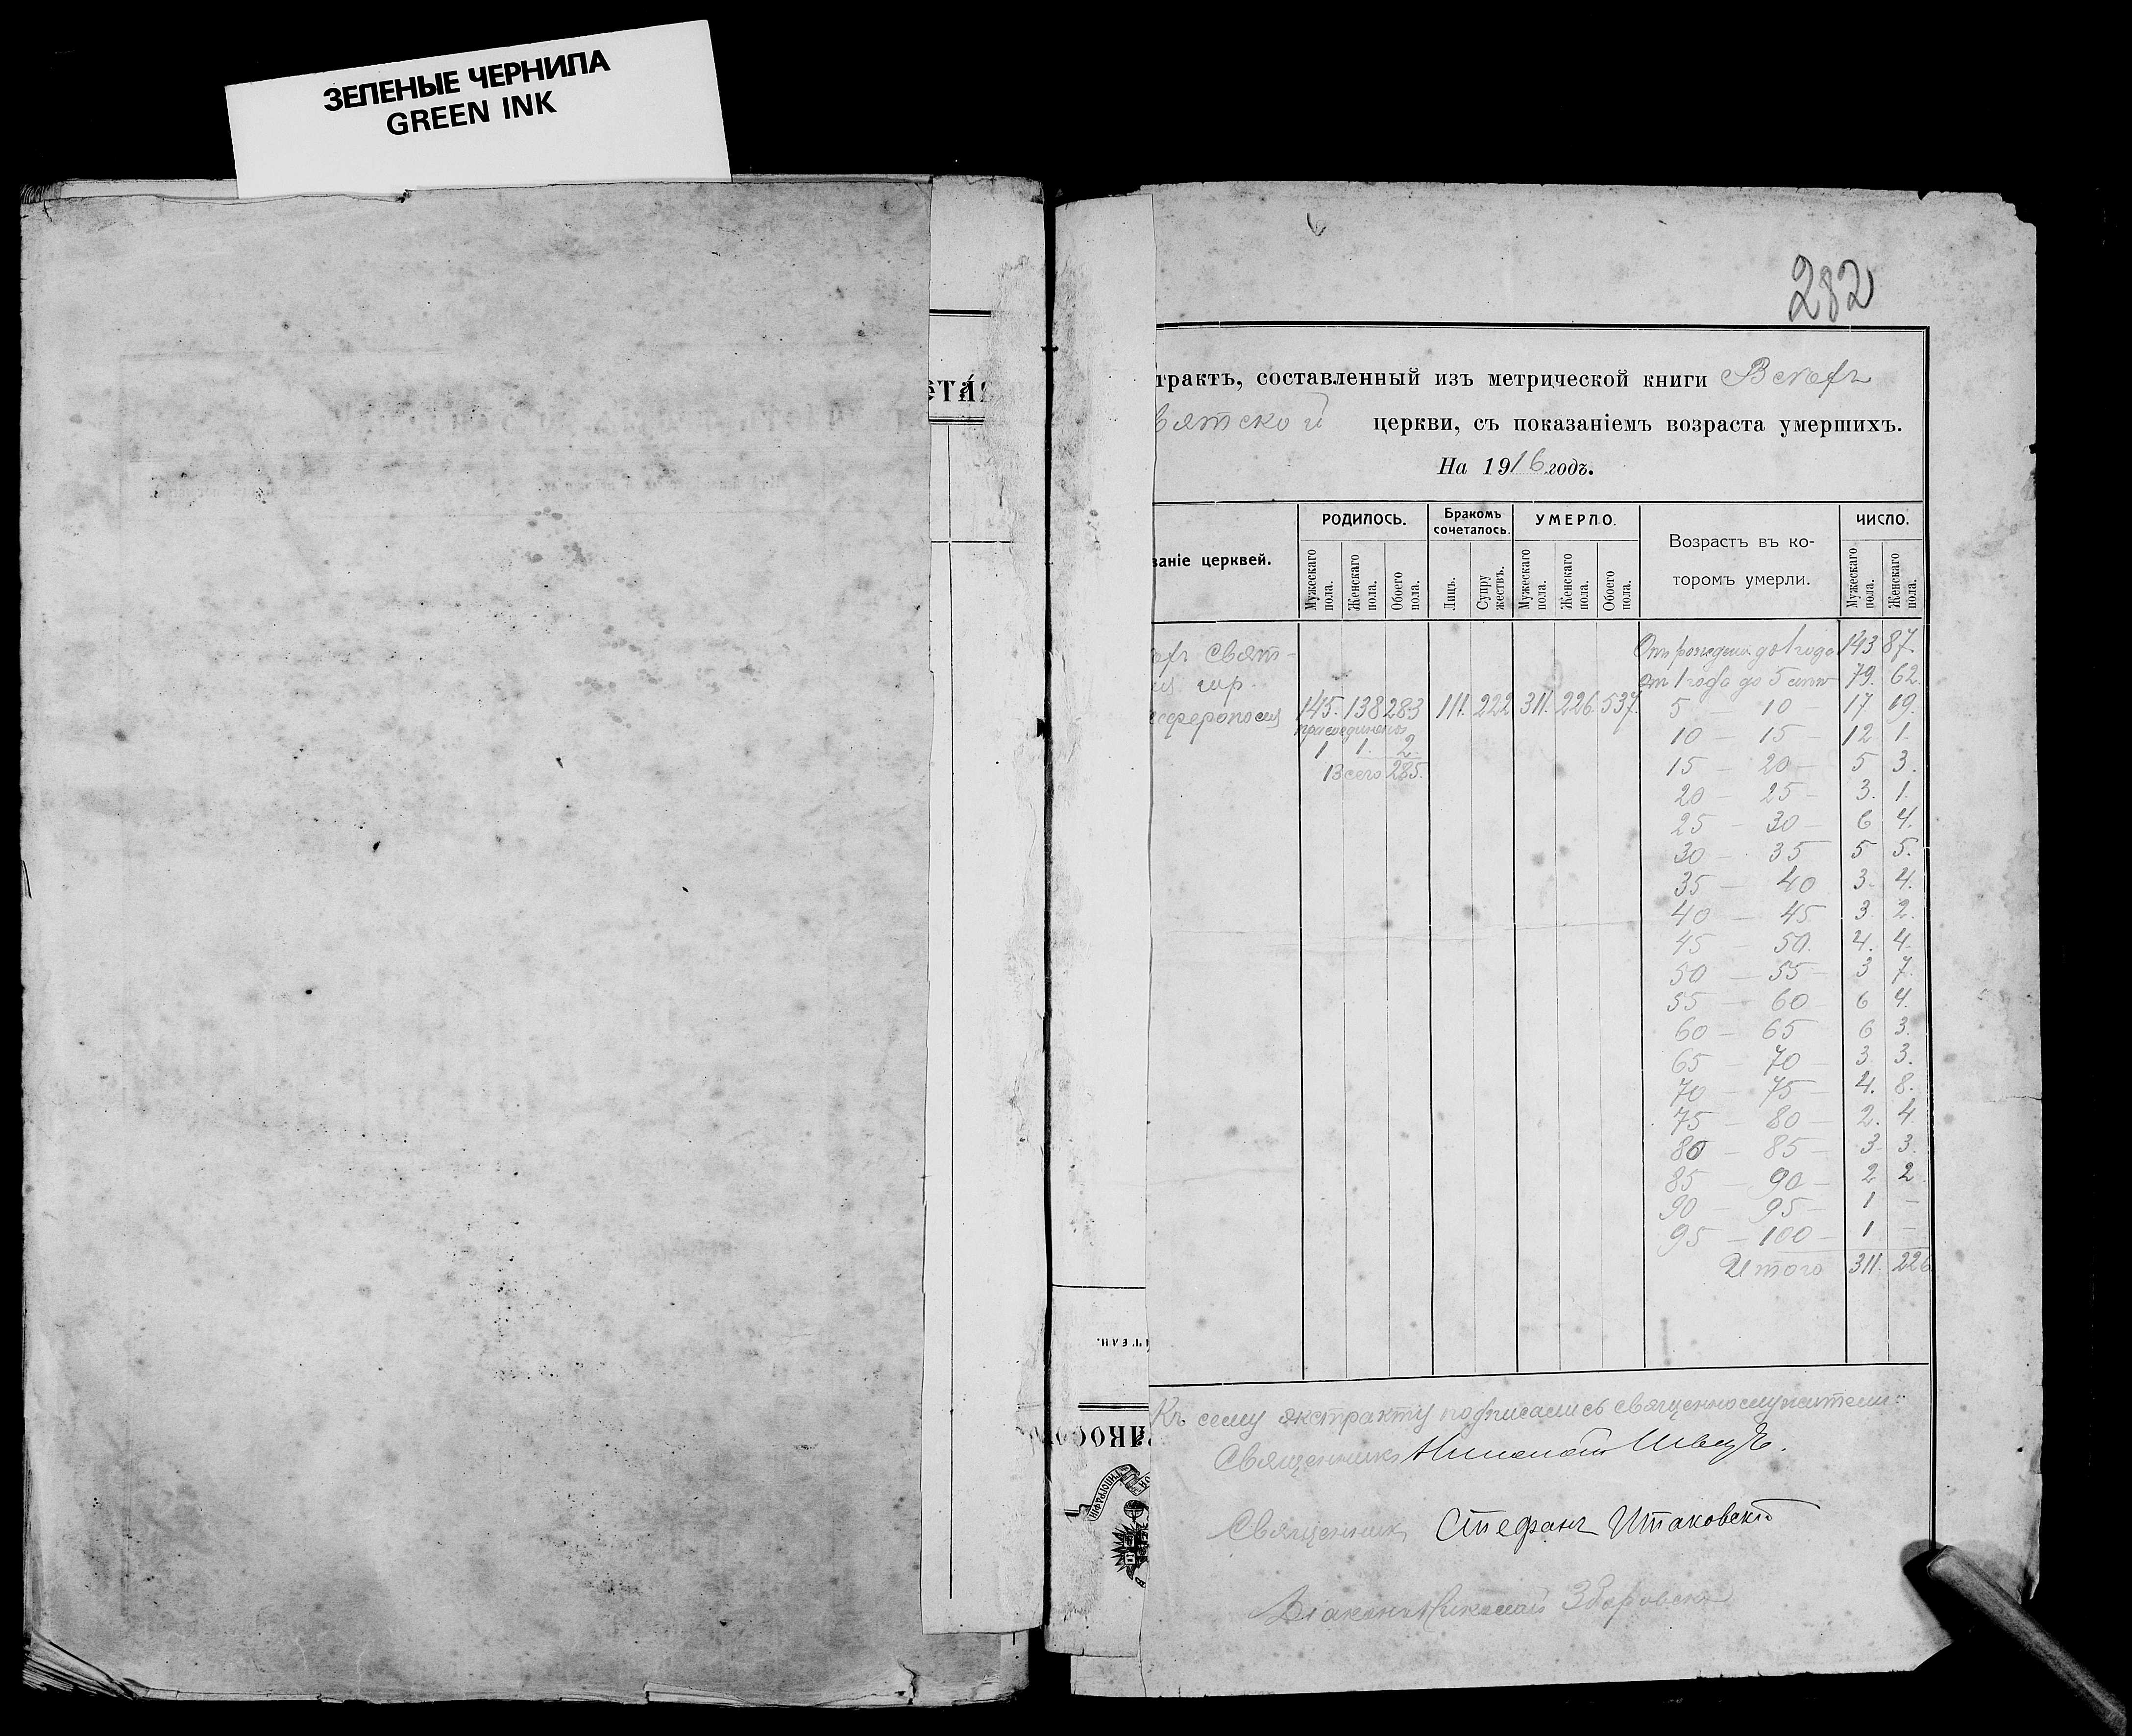 ЗЕЛЕНЫЕ ЧЕРНИЛА
GREEN INK
282
трактъ, составленный изъ метрической книги Всѣхъ
вятской церкви, съ показаніемъ возраста умершихъ.
На 1916 годъ.
ваніе церквей.
РОДИЛОСЬ.
Мужескаго пола.
Женскаго пола.
Обоего пола.
Бракомъ сочеталось.
Лицъ.
Супружествъ.
УМЕРЛО.
Мужескаго пола.
Женскаго пола.
Обоего пола.
Возрастъ въ которомъ умерли.
ЧИСЛО.
Мужескаго пола.
Женскаго пола.
ѣхъ Свят-
гор.
мферополя 145. 138 283 111. 222 311. 226. 537.
присоединено
1 1. 2.
Всего 285.
Отъ рожденія до 1 года 143 87.
от 1 года до 5 лѣтъ 79. 62.
5 — 10 — 17 19.
10 — 15 — 12 1.
15 — 20 — 5 3.
20 — 25 — 3. 1.
25 — 30 — 6 4.
30 — 35 5 5.
35 — 40 3. 4.
40 — 45 3. 2.
45 — 50. 4. 4.
50 — 55 — 3 7.
55 — 60 6 4.
60 — 65 6 3.
65 — 70 — 3. 3.
70 — 75 — 4. 8.
75 — 80 — 2. 4.
80 — 85 — 3. 3.
85 — 90 — 2 2
90 — 95 — 1 —
95 — 100 — 1 —
Итого 311. 226
Къ сему экстракту подписались священнослужители:
Священникъ Николай Швецъ.
Священникъ Стефанъ Штаковскій
Діаконъ Николай Здоровскій
ИТЕЛИ.
ТИПОГРАФІИ